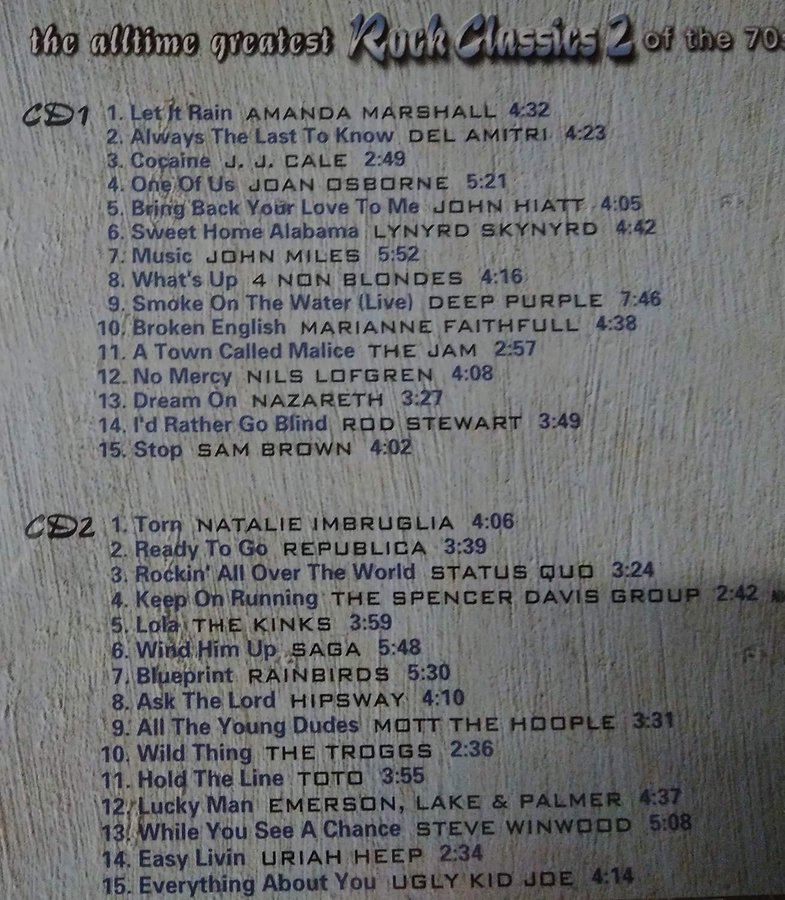 the alltime greatest Rock Classics 2 of the 70s
CD1 1. Let It Rain AMANDA MARSHALL 4:32
2. Always The Last To Know DEL AMITRI 4:23
3. Cocaine J. J. CALE 2:49
4. One Of Us JOAN OSBORNE 5:21
5. Bring Back Your Love To Me JOHN HIATT 4:05
6. Sweet Home Alabama LYNYRD SKYNYRD 4:42
7. Music JOHN MILES 5:52
8. What's Up 4 NON BLONDES 4:16
9. Smoke On The Water (Live) DEEP PURPLE 7:46
10. Broken English MARIANNE FAITHFULL 4:38
11. A Town Called Malice THE JAM 2:57
12. No Mercy NILS LOFGREN 4:08
13. Dream On NAZARETH 3:27
14. I'd Rather Go Blind ROD STEWART 3:49
15. Stop SAM BROWN 4:02
CD2 1. Torn NATALIE IMBRUGLIA 4:06
2. Ready To Go REPUBLICA 3:39
3. Rockin' All Over The World STATUS QUO 3:24
4. Keep On Running THE SPENCER DAVIS GROUP 2:42
5. Lola THE KINKS 3:59
6. Wind Him Up SAGA 5:48
7. Blueprint RAINBIRDS 5:30
8. Ask The Lord HIPSWAY 4:10
9. All The Young Dudes MOTT THE HOOPLE 3:31
10. Wild Thing THE TROGGS 2:36
11. Hold The Line TOTO 3:55
12. Lucky Man EMERSON, LAKE & PALMER 4:37
13. While You See A Chance STEVE WINWOOD 5:08
14. Easy Livin URIAH HEEP 2:34
15. Everything About You UGLY KID JOE 4:14